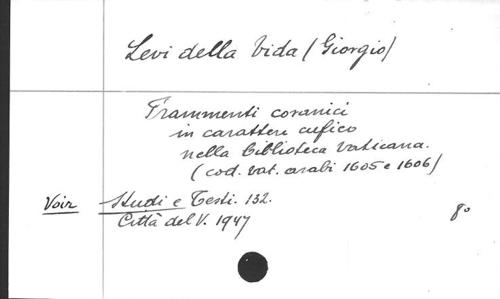 Levi della Vida (Giorgio)
Frammenti coranici
in carattere cufico
nella Biblioteca Vaticana.
(cod. vat. arabi 1605 e 1606)
Voir Studi e Testi. 132.
Città del V. 1947 8°